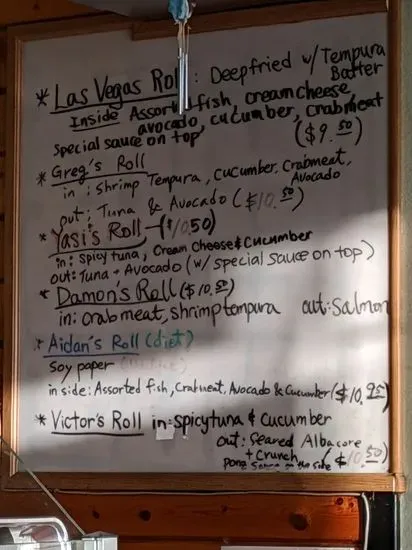 * Las Vegas Roll: Deepfried w/ Tempura Batter
Inside Assorted fish, cream cheese,
avocado, cucumber, crabmeat
special sauce on top ($9.50)
* Greg's Roll
in: shrimp Tempura, cucumber, Crabmeat, Avocado
out: Tuna & Avocado ($10.50)
* Yasi's Roll – ($10.50)
in: spicy tuna, Cream Cheese & Cucumber
out: Tuna + Avocado (w/ special sauce on top)
* Damon's Roll ($10.50)
in: crab meat, shrimp tempura out: Salmon
* Aidan's Roll (diet)
Soy paper
in side: Assorted fish, Crabmeat, Avocado & Cucumber ($10.95)
* Victor's Roll in: spicy tuna & cucumber
out: Seared Albacore
+ Crunch ($10.50)
ponzu Sauce on the side